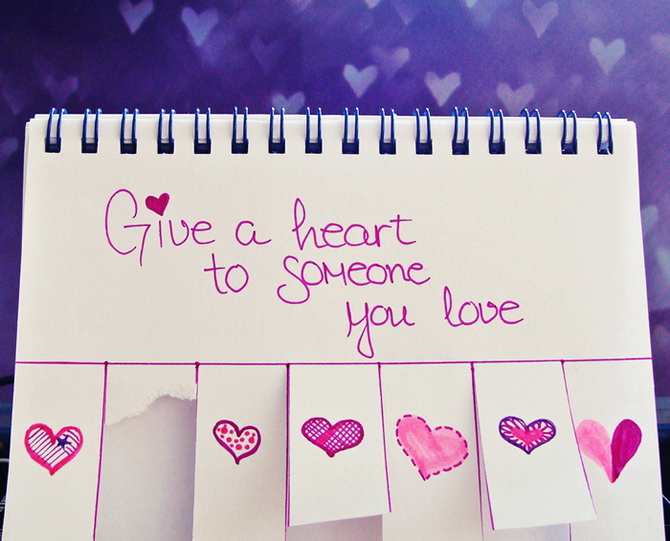 Give a heart
to someone
you love